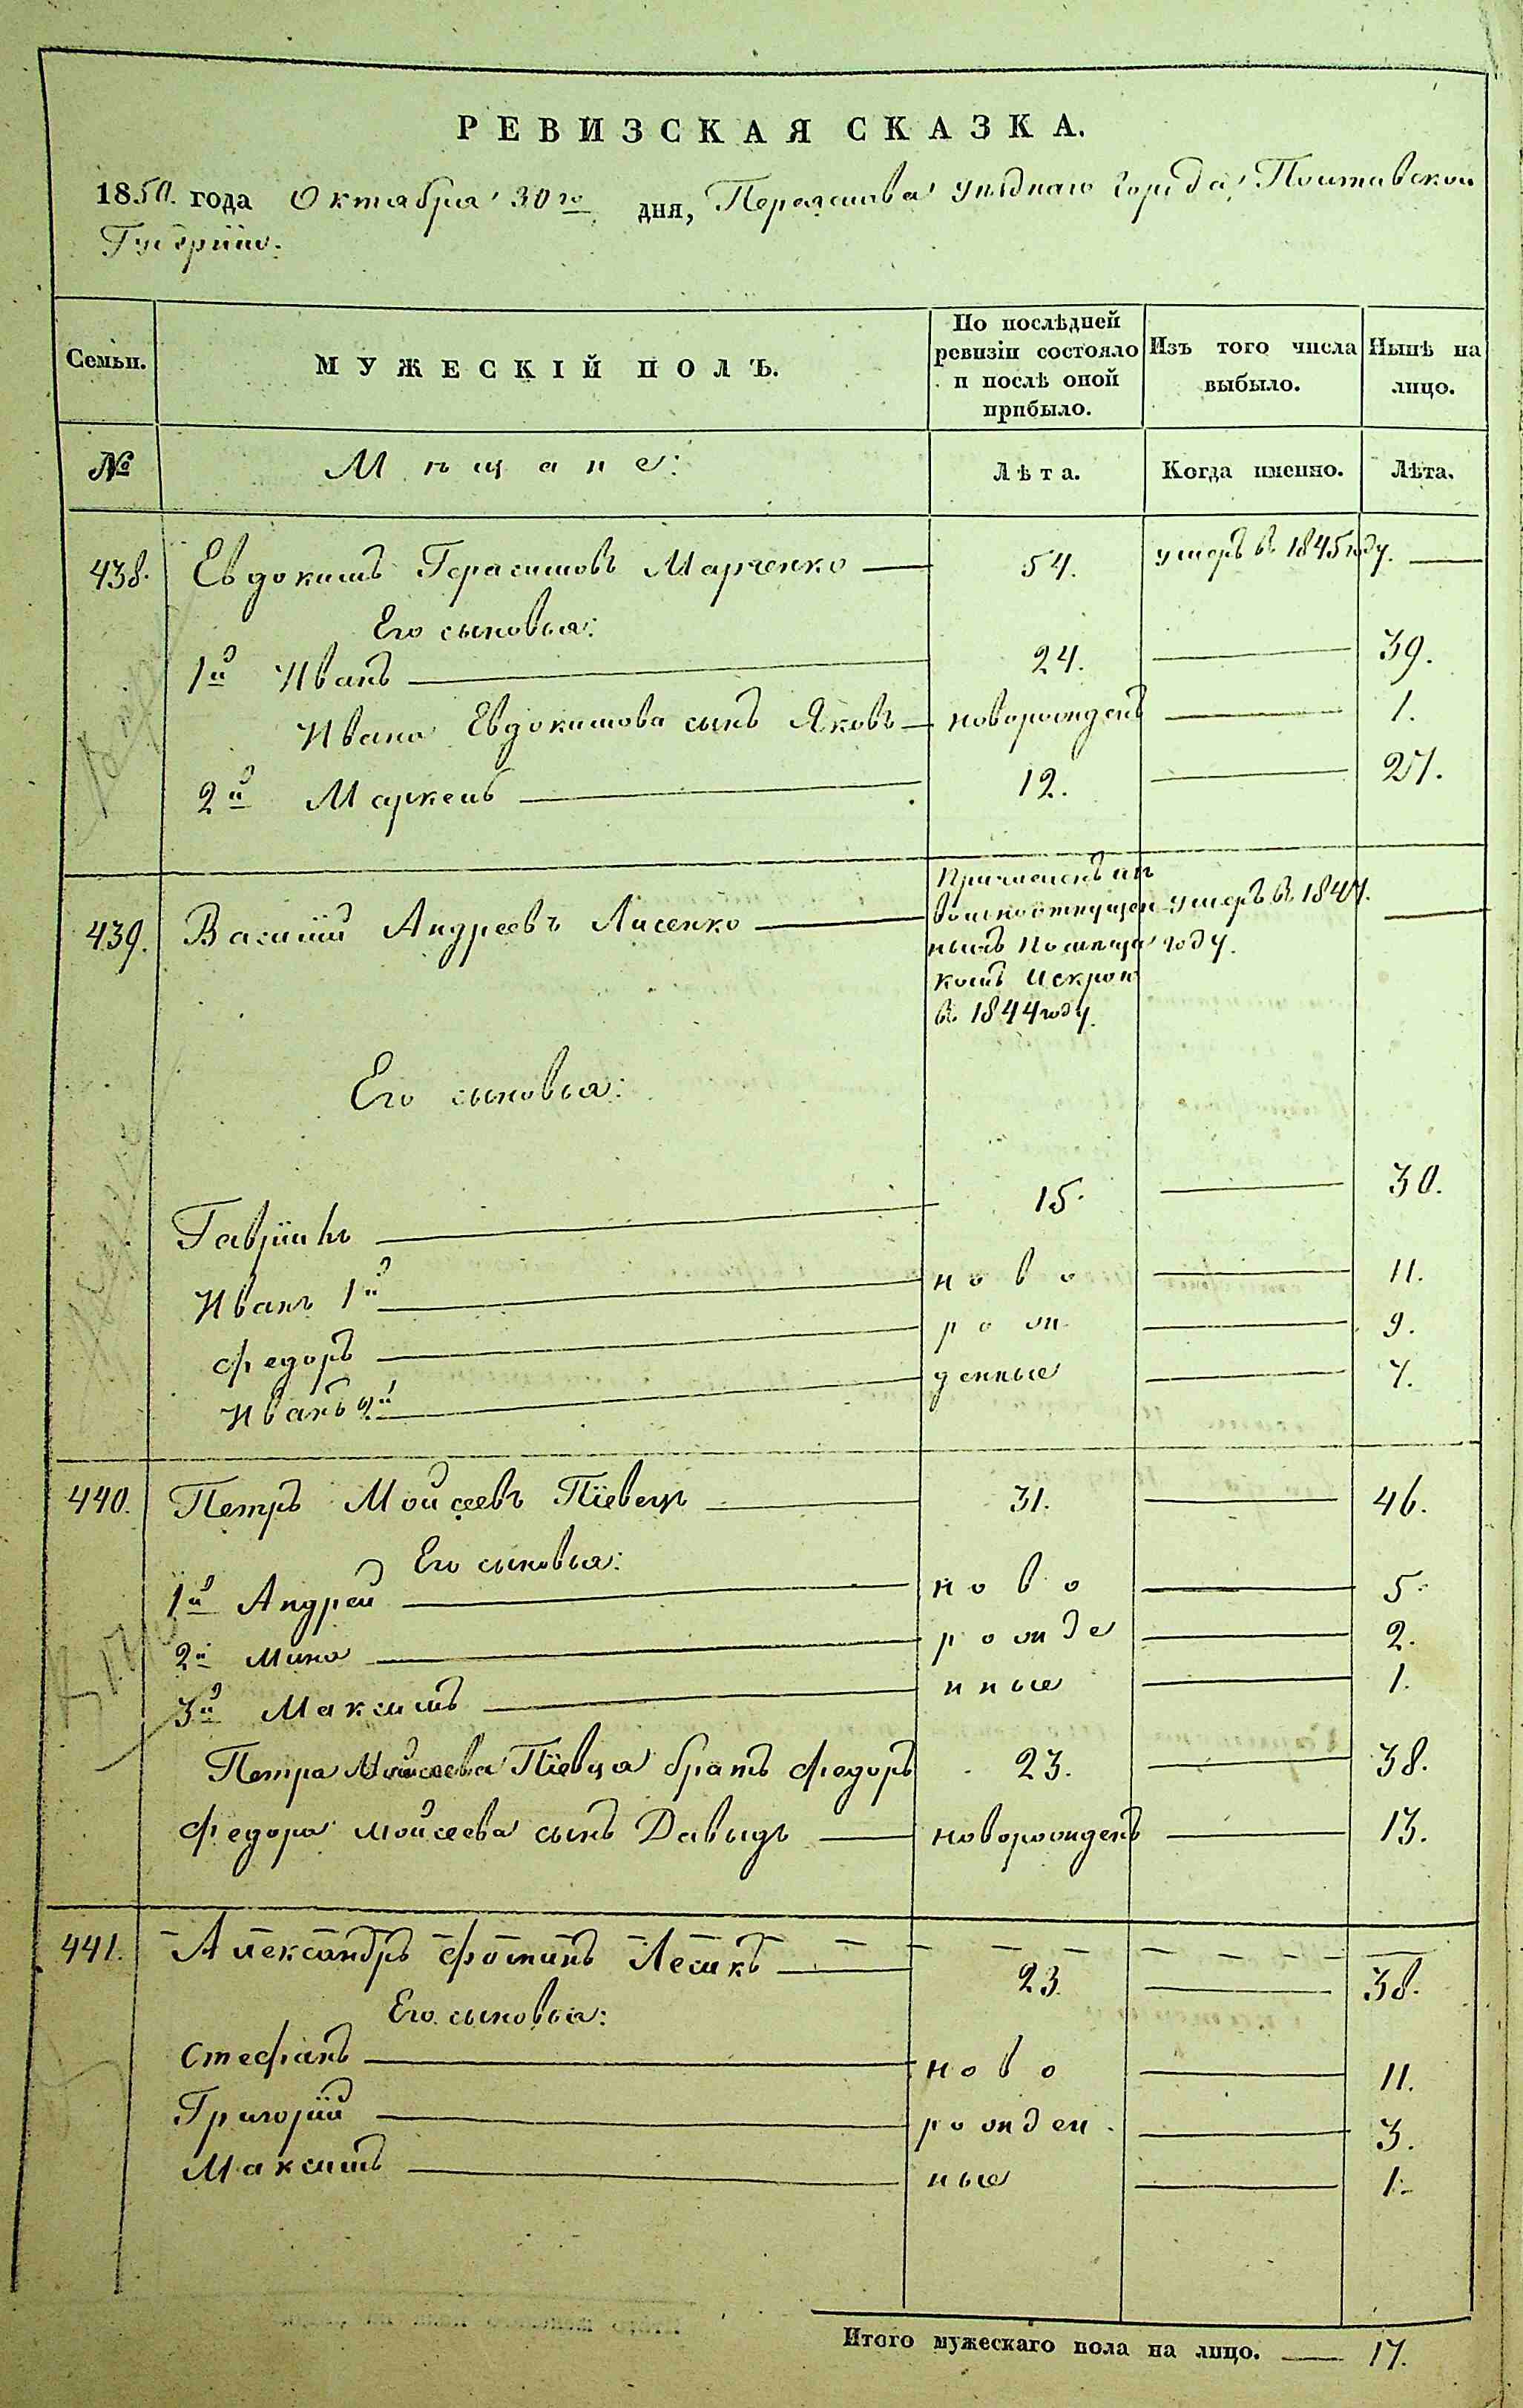 РЕВИЗСКАЯ СКАЗКА.
1850. года Октября 30го дня, Переяслава уѣзднаго города, Полтавской
Губерніи.
Семьи. МУЖЕСКІЙ ПОЛЪ. По послѣдней ревизіи состояло и послѣ оной прибыло. Изъ того числа выбыло. Нынѣ на лицо.
№ Мѣщане: Лѣта. Когда именно. Лѣта.
438. Евдокимъ Герасимовъ Марченко — 54. умеръ въ 1845 году. —
Его сыновья:
1й Иванъ — 24. — 39.
Ивана Евдокимова сынъ Яковъ — новорожденъ — 1.
2й Маркелъ — 12. — 27.
439. Василій Андреевъ Лисенко — Причисленъ изъ вольноотпущенныхъ помѣщикомъ Искрою въ 1844 году. умеръ въ 1847. году. —
Его сыновья:
Гавріилъ — 15. — 30.
Иванъ 1й — ново — 11.
Федоръ — рож — 9.
Иванъ 2й — денные — 7.
440. Петръ Мойсеевъ Пѣвецъ — 31. — 46.
Его сыновья:
1й Андрей — ново — 5.
2й Мина — рожде — 2.
3й Максимъ — нные — 1.
Петра Мойсеева Піевца братъ Федоръ 23. — 38.
Федора Мойсеева сынъ Давыдъ — новорожденъ — 13.
441. Александръ Фоминъ Лешкъ — 23. — 38.
Его сыновья:
Стефанъ — ново — 11.
Григорій — рожден — 3.
Максимъ — ные — 1.
Итого мужескаго пола на лицо. — 17.